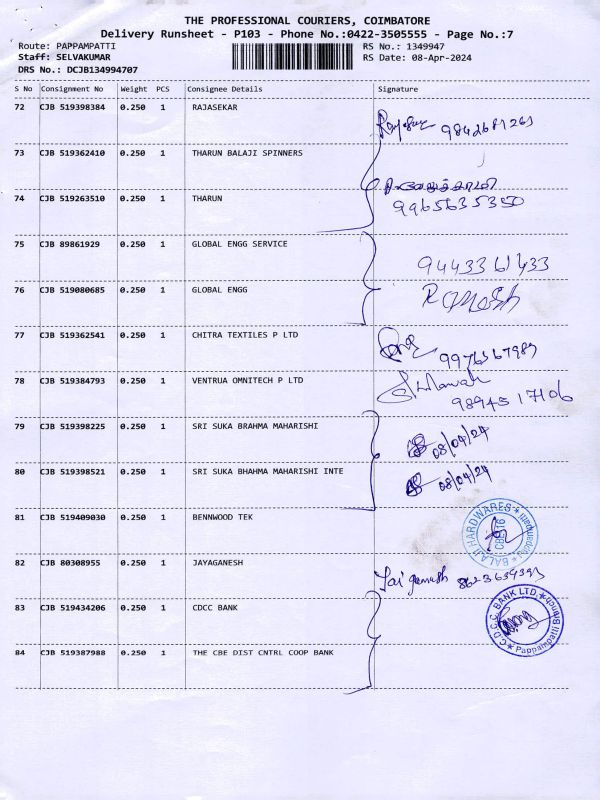 THE PROFESSIONAL COURIERS, COIMBATORE
Delivery Runsheet - P103 - Phone No.:0422-3505555 - Page No.:7
Route: PAPPAMPATTI RS No.: 1349947
Staff: SELVAKUMAR RS Date: 08-Apr-2024
DRS No.: DCJB134994707
S No Consignment No Weight PCS Consignee Details Signature
72 CJB 519398384 0.250 1 RAJASEKAR
73 CJB 519362410 0.250 1 THARUN BALAJI SPINNERS
74 CJB 519263510 0.250 1 THARUN
9965635350
75 CJB 89861929 0.250 1 GLOBAL ENGG SERVICE
9443361433
76 CJB 519080685 0.250 1 GLOBAL ENGG
Ramesh
77 CJB 519362541 0.250 1 CHITRA TEXTILES P LTD
78 CJB 519384793 0.250 1 VENTRUA OMNITECH P LTD
9894517106
79 CJB 519398225 0.250 1 SRI SUKA BRAHMA MAHARISHI
08/04/24
80 CJB 519398521 0.250 1 SRI SUKA BHAHMA MAHARISHI INTE
08/04/24
81 CJB 519409030 0.250 1 BENNWOOD TEK
BALAJI HARDWARES
82 CJB 80308955 0.250 1 JAYAGANESH
Jai ganesh
83 CJB 519434206 0.250 1 CDCC BANK
C.D.C.C. BANK LTD.
Pappampatti Branch
84 CJB 519387988 0.250 1 THE CBE DIST CNTRL COOP BANK